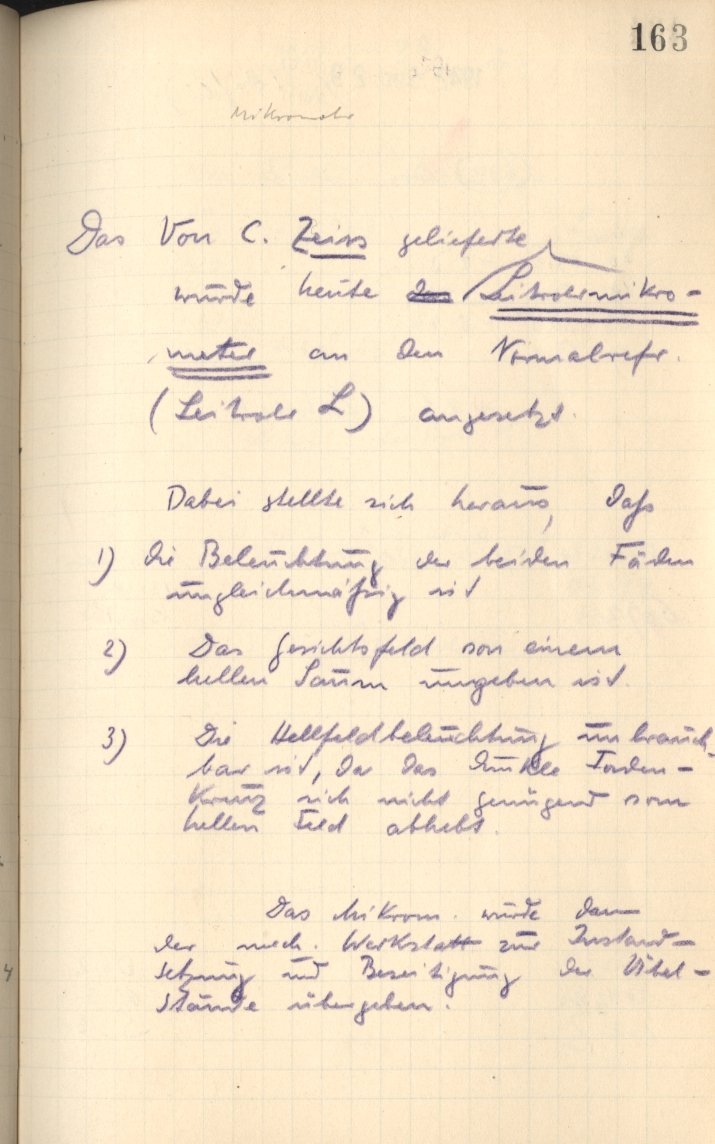 163
Mikrometer
Das von C. Zeiss gelieferte
wurde heute Leitrohrmikro-
meter an den Normalrefr.
(Leitrohr L) angesetzt.
Dabei stellte sich heraus, daß
1) die Beleuchtung der beiden Fäden
ungleichmäßig ist
2) Das Gesichtsfeld von einem
hellen Saum umgeben ist.
3) Die Hellfeldbeleuchtung unbrauch-
bar ist, da das dunkle Faden-
kreuz sich nicht genügend vom
hellen Feld abhebt.
Das Mikrom. wurde dann
der mech. Werkstatt zur Instand-
setzung und Beseitigung der Übel-
stände übergeben.